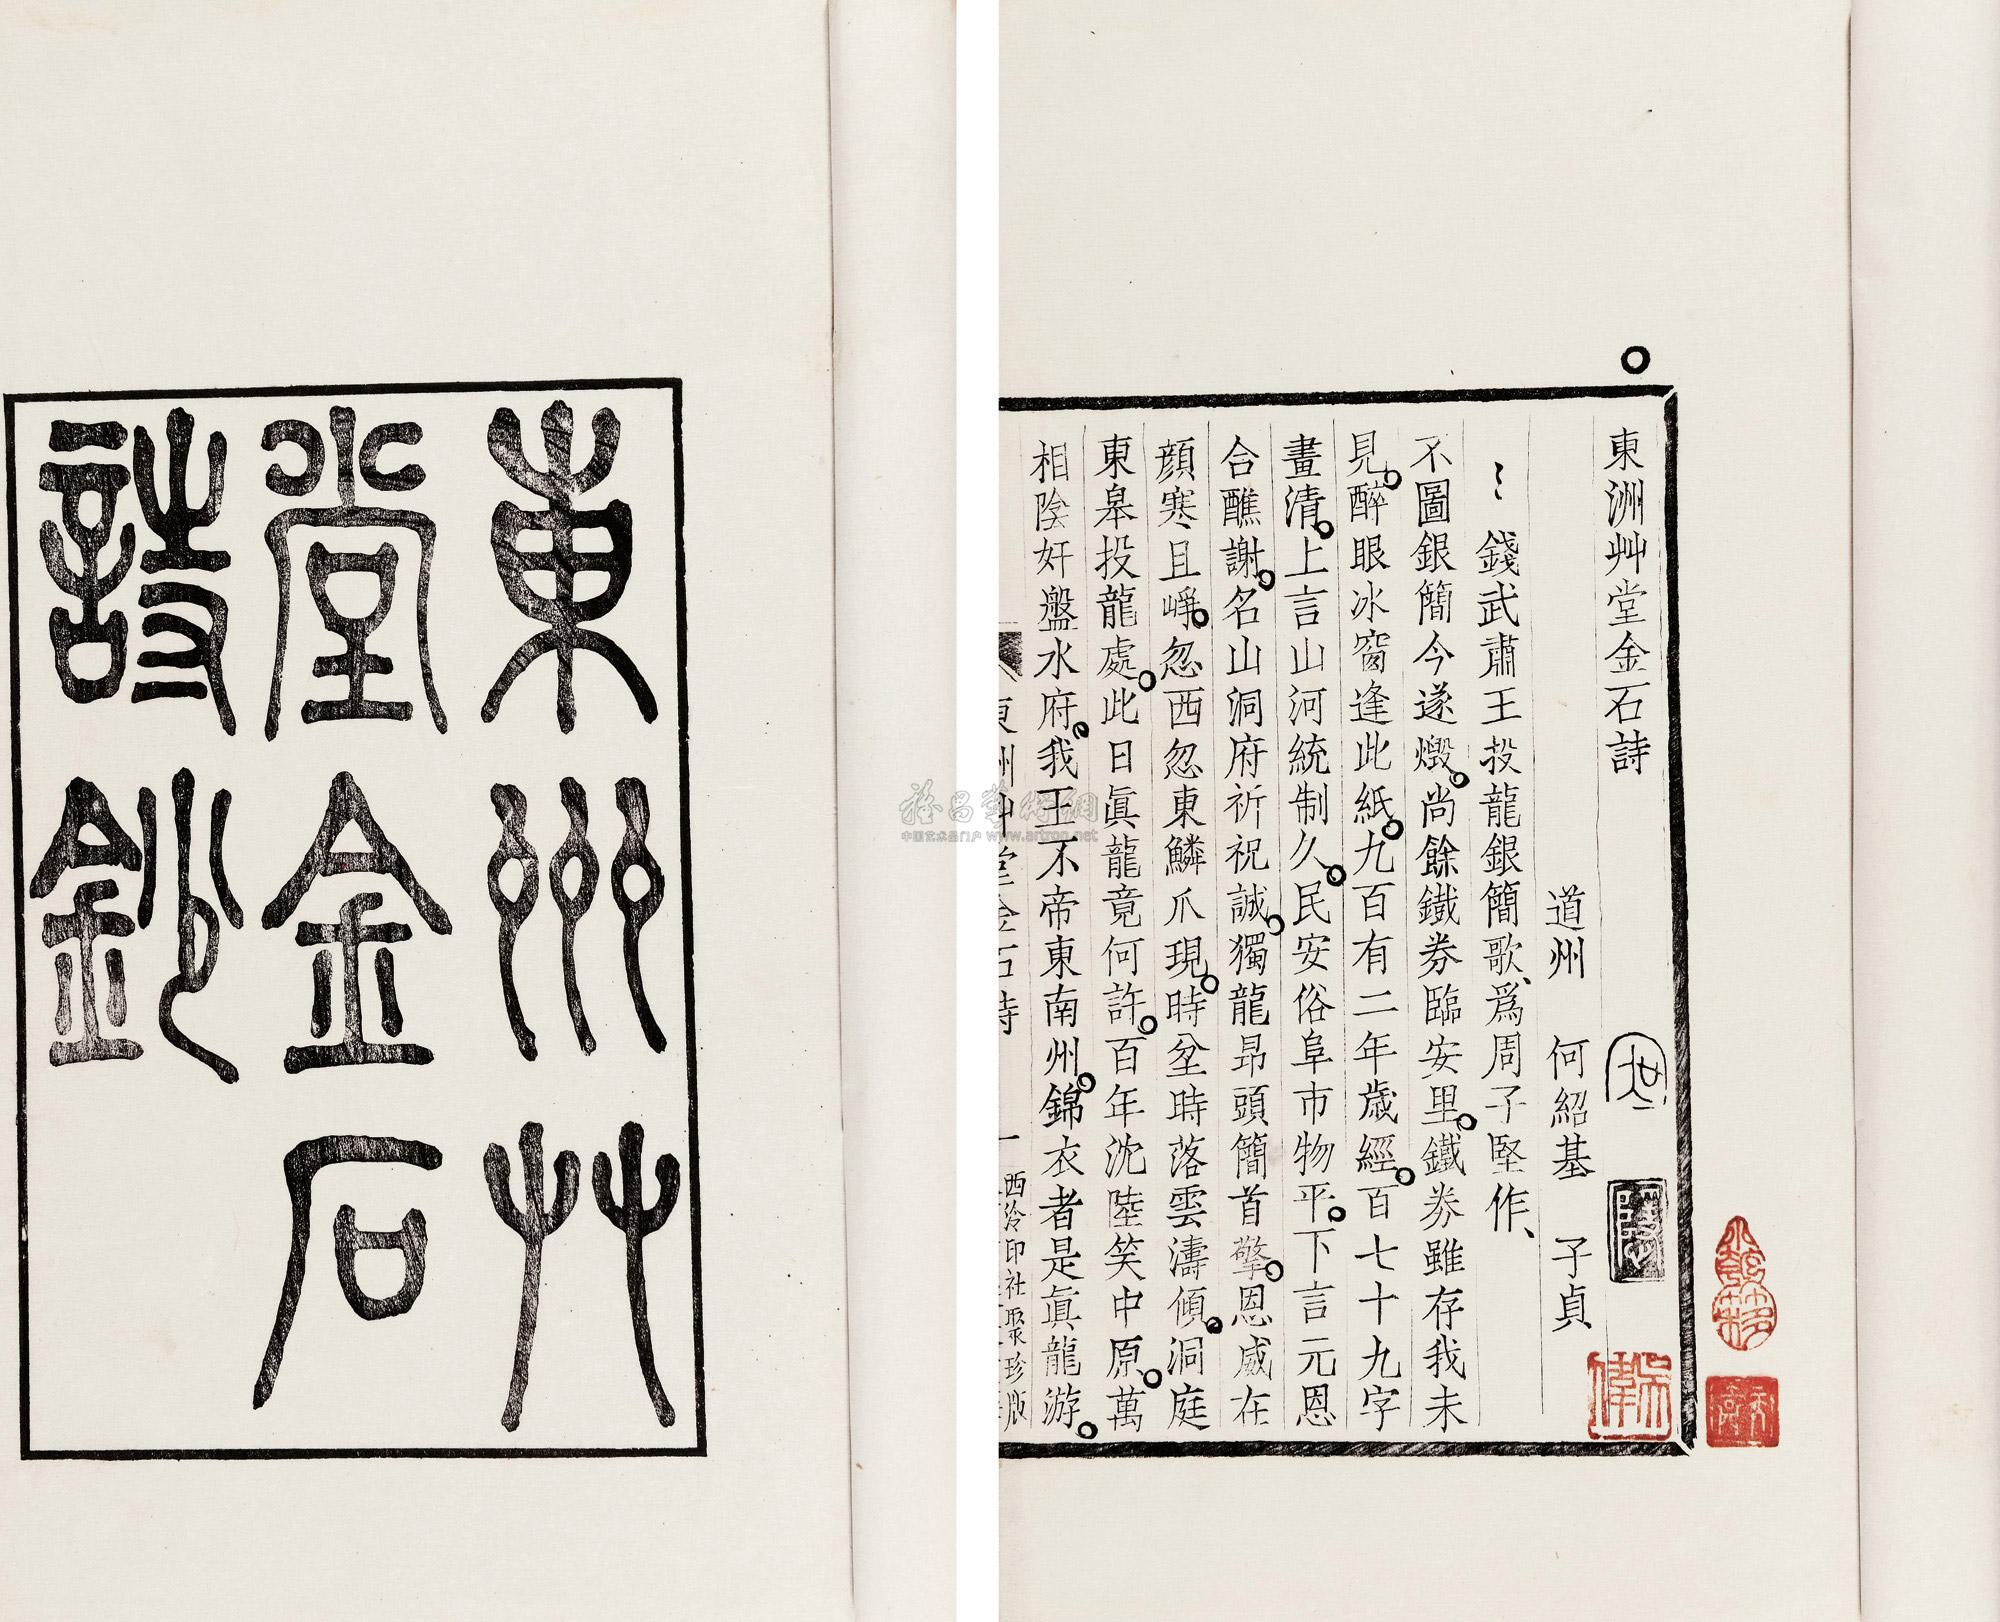 東州艸
堂金石
詩鈔
東洲艸堂金石詩
道州 何紹基 子貞
錢武肅王投龍銀簡歌、爲周子堅作、
不圖銀簡今遂燬。尚餘鐵券臨安里。鐵券雖存我未
見。醉眼冰窗逢此紙。九百有二年歲經。百七十九字
畫清。上言山河統制久。民安俗阜市物平。下言元恩
合醮謝。名山洞府祈祝誠。獨龍昂頭簡首擎。恩威在
顔寒且崢。忽西忽東鱗爪現。時坌時落雲濤傾。洞庭
東皋投龍處。此日眞龍竟何許。百年沈陸笑中原。萬
相陰奸盤水府。我王不帝東南州。錦衣者是眞龍游。
西泠印社聚珍版
雅昌藝術網
中国艺术品门户 www.artron.net